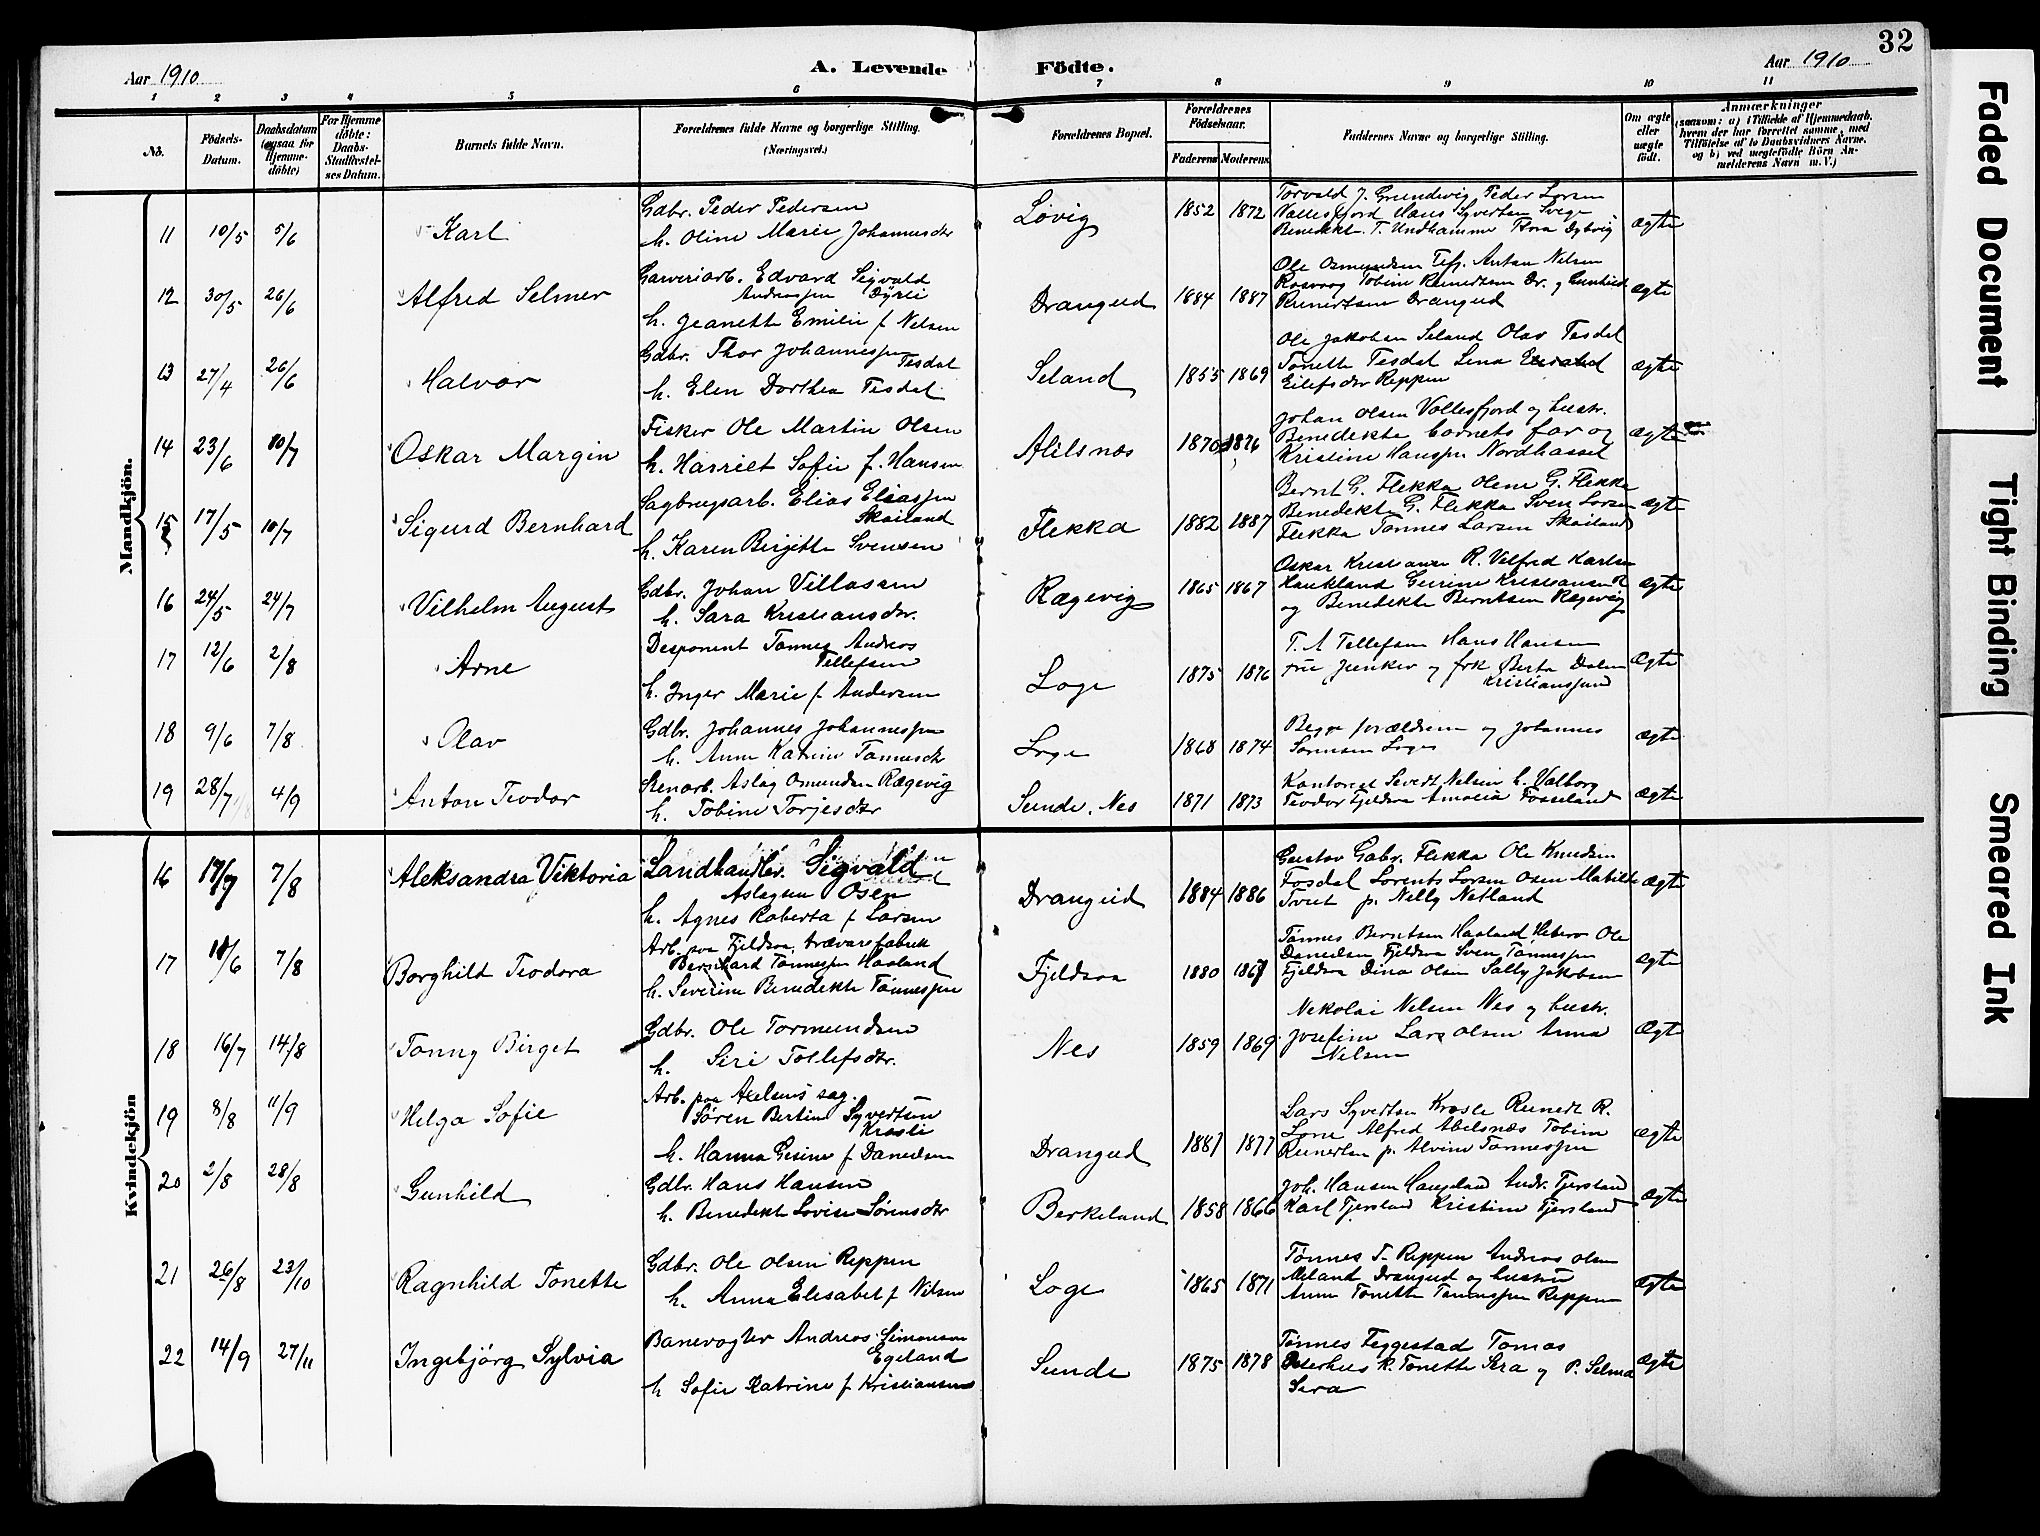 32
Aar 1910
A. Levende Födte.
Aar 1910
1 2 3 4 5 6 7 8 9 10 11
No.
Födsels-Datum.
Daabsdatum (ogsaa for Hjemme-döbte)
For Hjemme döbte: Daabs-Stadfæstel-ses Datum.
Barnets fulde Navn.
Forældrenes fulde Navne og borgerlige Stilling.
(Næringsvei.)
Forældrenes Bopæl.
Forældrenes Födselsaar.
Faderens Moderens
Faddernes Navne og borgerlige Stilling.
Om ægte eller uægte födt.
Anmærkninger
(saasom: a) i Tilfælde af Hjemmedaab,
hvem der har forrettet samme, med
Tilföielse af to Daabsvidners Navne,
og b) ved uægtefödte Börn An-
melderens Navn m. V.)
Mandkjön.
11 10/5 5/6 Karl
Gdbr. Peder Pedersen
h. Oline Marie Johannesdtr
Løvig 1852 1872
Torvald J. Grundevig Peder Larsen
Vollesfjord Hans Syvertsen Svege
Benedikte T. Undhamme Thora Dybvig
ægte
12 30/5 26/6 Alfred Selmer
Garveriarb. Edvard Sigvald
Andreassen Dyrli
h. Jeanette Emilie f Nelsen
Drangeid 1884 1887
Ole Osmundsen Tefj. Anton Nelsen
Rosvaag Tobine Reinertsen Dr. og Gunhild
Reinertsen Drangeid
ægte
13 27/4 26/6 Halvor
Gdbr. Thor Johannessen
Tesdal
h. Elen Dorthea Tesdal
Seland 1855 1869
Ole Jakobsen Seland Olav Tesdal
Tonette Tesdal Lena
Eilefsdtr Reppen
ægte
14 23/6 10/7 Oskar Margin
Fisker Ole Martin Olsen
h. Harriet Sofie f. Hansen
Abelsnæs 1870 1876
Johan Olsen Vollesfjord og hustr.
Benedikte barnets far og
Kristine Hanssen Nordhassel
ægte
15 17/5 10/7 Sigurd Bernhard
Sagbrugsarb. Elias Eliassen
Skailand
h. Karen Birgitte Svensen
Flekka 1882 1887
Bernt G. Flekka Olene G. Flekke
Benedikte G. Flekka Sven Larsen
Flekka Tønnes Larsen Skailand
ægte
16 24/5 24/7 Vilhelm August
Gdbr. Johan Villassen
h. Sara Kristiansdtr.
Rægevig 1865 1867
Oskar Kristiansen R. Vilfred Karlsen
Haukland Gurine Kristiansen R
og Benedikte Berntsen Rægevig
ægte
17 12/6 2/8 Arne
Desponent Tønnes Andreas
Tellefsen
h. Inger Marie f Andersen
Loge 1875 1876
T. A Tellefsen Hans Hansen
fru Junker og frk Berta Dalen
Kristianssund
ægte
18 9/6 7/8 Olav
Gdbr. Johannes Johannessen
h. Anne Katrine Tønnesdtr
Loge 1868 1874
Begge forældrene og Johannes
Sørensen Loge
ægte
19 28/7 4/9 Anton Teodor
Stenarb. Aslag Omundsen Rægevig
h. Tobine Torjesdtr
Sunde, Nes 1871 1873
Kontorist Sevedt Nelsen h. Valborg
Teodor Fjeldsaa Amalia Fosseland
ægte
Kvindekjön
16 17/7 7/8 Aleksandra Viktoria
Landhandler. Sigvald
Aslagsen Osen
h. Agnes Roberta f Larsen
Drangeid 1884 1886
Gustav Gabr. Flekka Ole Knudsen
Fosdal Lorents Larsen Osen Matilde
Tveit p. Nelly Netland
ægte
17 10/6 7/8 Borghild Teodora
Arb. paa Fjeldsaa trævarefabrik
Bernhard Tønnessen Haaland
h. Severine Benedikte Tønnessen
Fjeldsaa 1880
Tønnes Berntsen Haaland Ole
Danielsen Fjeldsaa Sven Tønnessen
Fjeldsaa Dina Olsen Sally Jakobsen
ægte
18 16/7 14/8 Tonny Birget
Gdbr. Ole Tormundsen
h. Siri Tollefsdtr.
Nes 1859 1869
Nekolai Nelsen Nes og hustr.
Josefine Lars Olsen Anna
Nelsen
ægte
19 8/8 11/9 Helga Sofie
Arb. paa sag.
Søren Bertin Syvertsen
Krosli
h. Hanna Gesine f Danielsen
Drangeid 1881 1877
Lars Syvertsen Krosle Reinert R.
Lone Alfred Abelsnæs Tobine
Reinertsen p. Alvine Tønnessen
ægte
20 2/8 28/8 Gunhild
Gdbr. Hans Hansen
h. Benedikte Lovise Sørensdtr
Berkeland 1858 1866
Joh. Hansen Haugeland Andr. Tjersland
Karl Tjersland Kristine Tjersland
ægte
21 26/8 23/10 Ragnhild Tonette
Gdbr. Ole Olsen Reppen
h. Anna Elisabet f Nilsen
Loge 1865 1871
Tønnes T. Reppen Andreas Olsen
Meland Drangeid og hustru
Anne Tonette Tønnessen Reppen
ægte
22 14/9 27/11 Ingebjørg Sylvia
Banevogter Andreas Simonsen
Egeland
h Sofie Katrine f Kristiansen
Sunde 1875 1878
Tønnes Feggestad Tomas
Osterhus k. Tonette Sira og P. Selma
Sira
ægte
Faded Document
Tight Binding
Smeared Ink